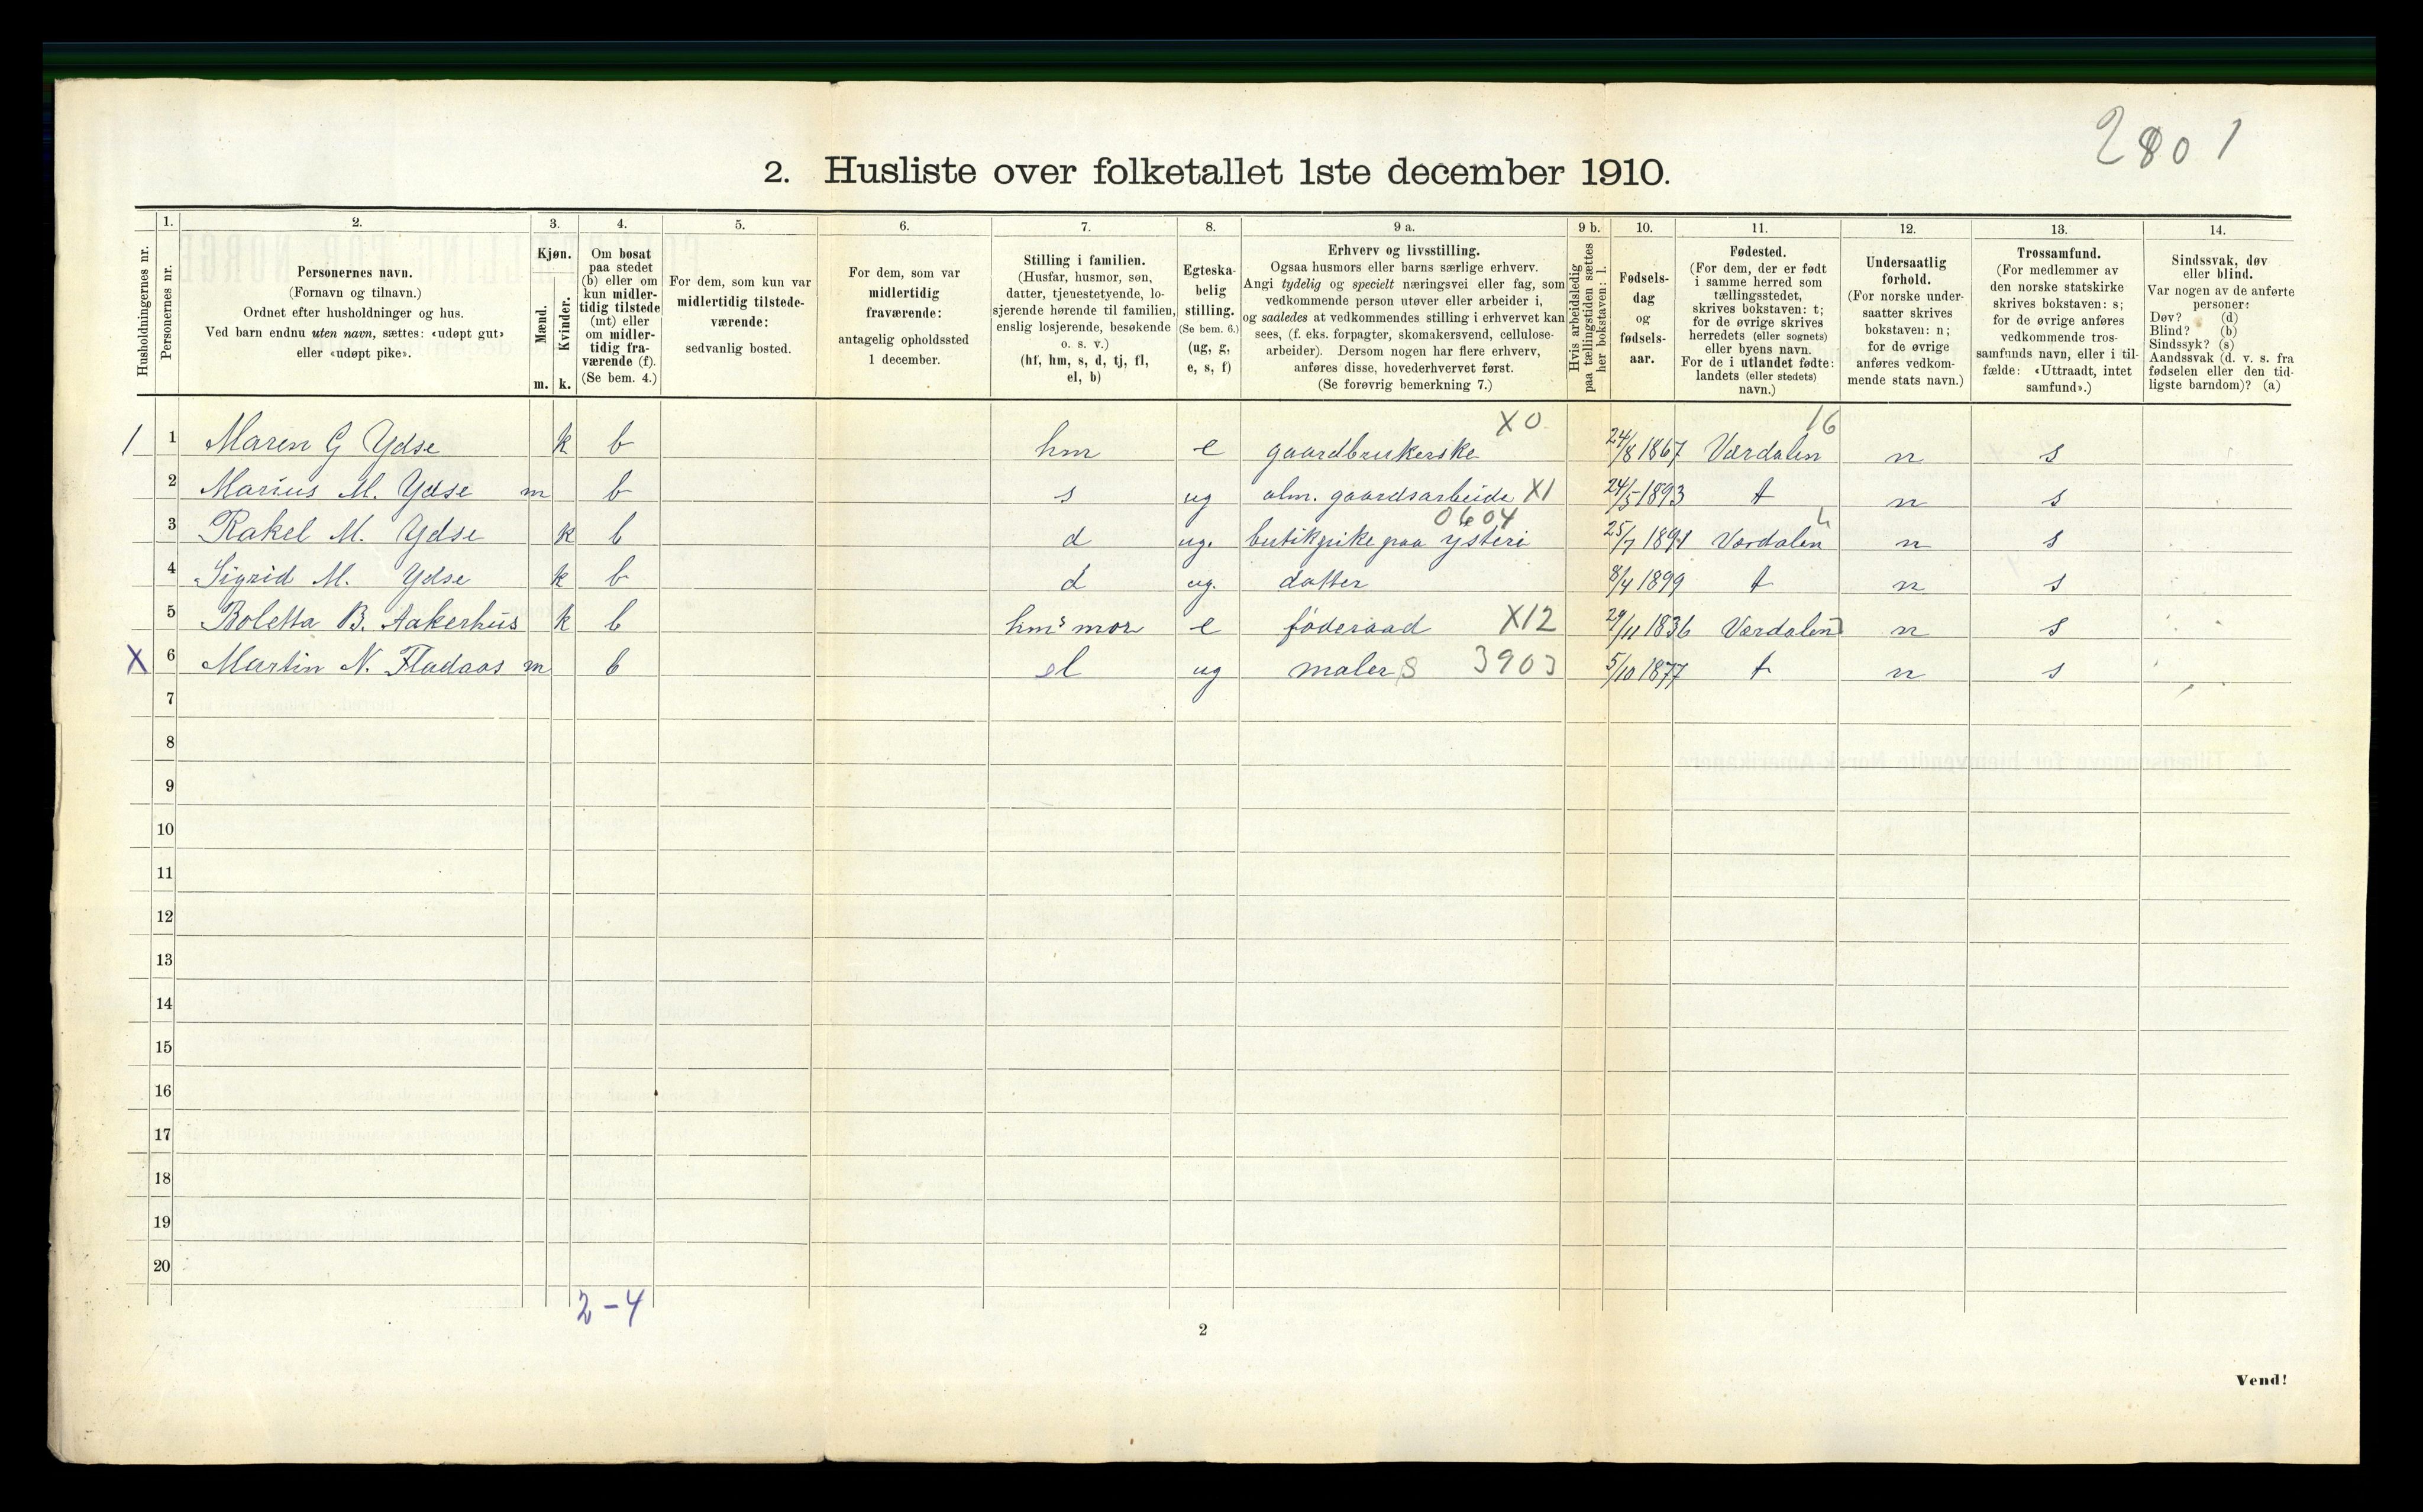 2801
2. Husliste over folketallet 1ste december 1910.
Husholdningernes nr.
1.
Personernes nr.
2.
Personernes navn.
(Fornavn og tilnavn.)
Ordnet efter husholdninger og hus.
Ved barn endnu uten navn, sættes: «udøpt gut»
eller «udøpt pike».
3.
Kjøn.
Mænd.
Kvinder.
m. k.
4.
Om bosat
paa stedet
(b) eller om
kun midler-
tidig tilstede
(mt) eller
om midler-
tidig fra-
værende (f).
(Se bem. 4.)
5.
For dem, som kun var
midlertidig tilstede-
værende:
sedvanlig bosted.
6.
For dem, som var
midlertidig
fraværende:
antagelig opholdssted
1 december.
7.
Stilling i familien.
(Husfar, husmor, søn,
datter, tjenestetyende, lo-
sjerende hørende til familien,
enslig losjerende, besøkende
o. s. v.)
(hf, hm, s, d, tj, fl,
el, b)
8.
Egteska-
belig
stilling.
(Se bem. 6.)
(ug, g,
e, s, f)
9 a.
Erhverv og livsstilling.
Ogsaa husmors eller barns særlige erhverv.
Angi tydelig og specielt næringsvei eller fag, som
vedkommende person utøver eller arbeider i,
og saaledes at vedkommendes stilling i erhvervet kan
sees, (f. eks. forpagter, skomakersvend, cellulose-
arbeider). Dersom nogen har flere erhverv,
anføres disse, hovederhvervet først.
(Se forøvrig bemerkning 7.)
9 b.
Hvis arbeidsledig
paa tællingstiden sættes
her bokstaven: l.
10.
Fødsels-
dag
og
fødsels-
aar.
11.
Fødested.
(For dem, der er født
i samme herred som
tællingsstedet,
skrives bokstaven: t;
for de øvrige skrives
herredets (eller sognets)
eller byens navn.
For de i utlandet fødte:
landets (eller stedets)
navn.)
12.
Undersaatlig
forhold.
(For norske under-
saatter skrives
bokstaven: n;
for de øvrige
anføres vedkom-
mende stats navn.)
13.
Trossamfund.
(For medlemmer av
den norske statskirke
skrives bokstaven: s;
for de øvrige anføres
vedkommende tros-
samfunds navn, eller i til-
fælde: «Uttraadt, intet
samfund».)
14.
Sindssvak, døv
eller blind.
Var nogen av de anførte
personer:
Døv? (d)
Blind? (b)
Sindssyk? (s)
Aandssvak (d. v. s. fra
fødselen eller den tid-
ligste barndom)? (a)
X0 16
1 1 Maren G Ydse k b hm e gaardbrukerske 24/8 1867 Værdalen n s
2 Marius M. Ydse m b s ug alm. gaardsarbeide X1 24/5 1893 t n s
0604 4
3 Rakel M. Ydse k b d ug. butikpike paa ysteri 25/7 1891 Værdalen n s
4 Sigrid M. Ydse k b d ug. datter 8/4 1899 t n s
5 Boletta B. Aakerhus k b hms mor e føderaad X12 29/11 1836 Værdalen n s
X 6 Martin N. Fladaas m b el ug maler S 3903 5/10 1877 t n s
7
8
9
10
11
12
13
14
15
16
17
18
19
20
2-4
2
Vend!